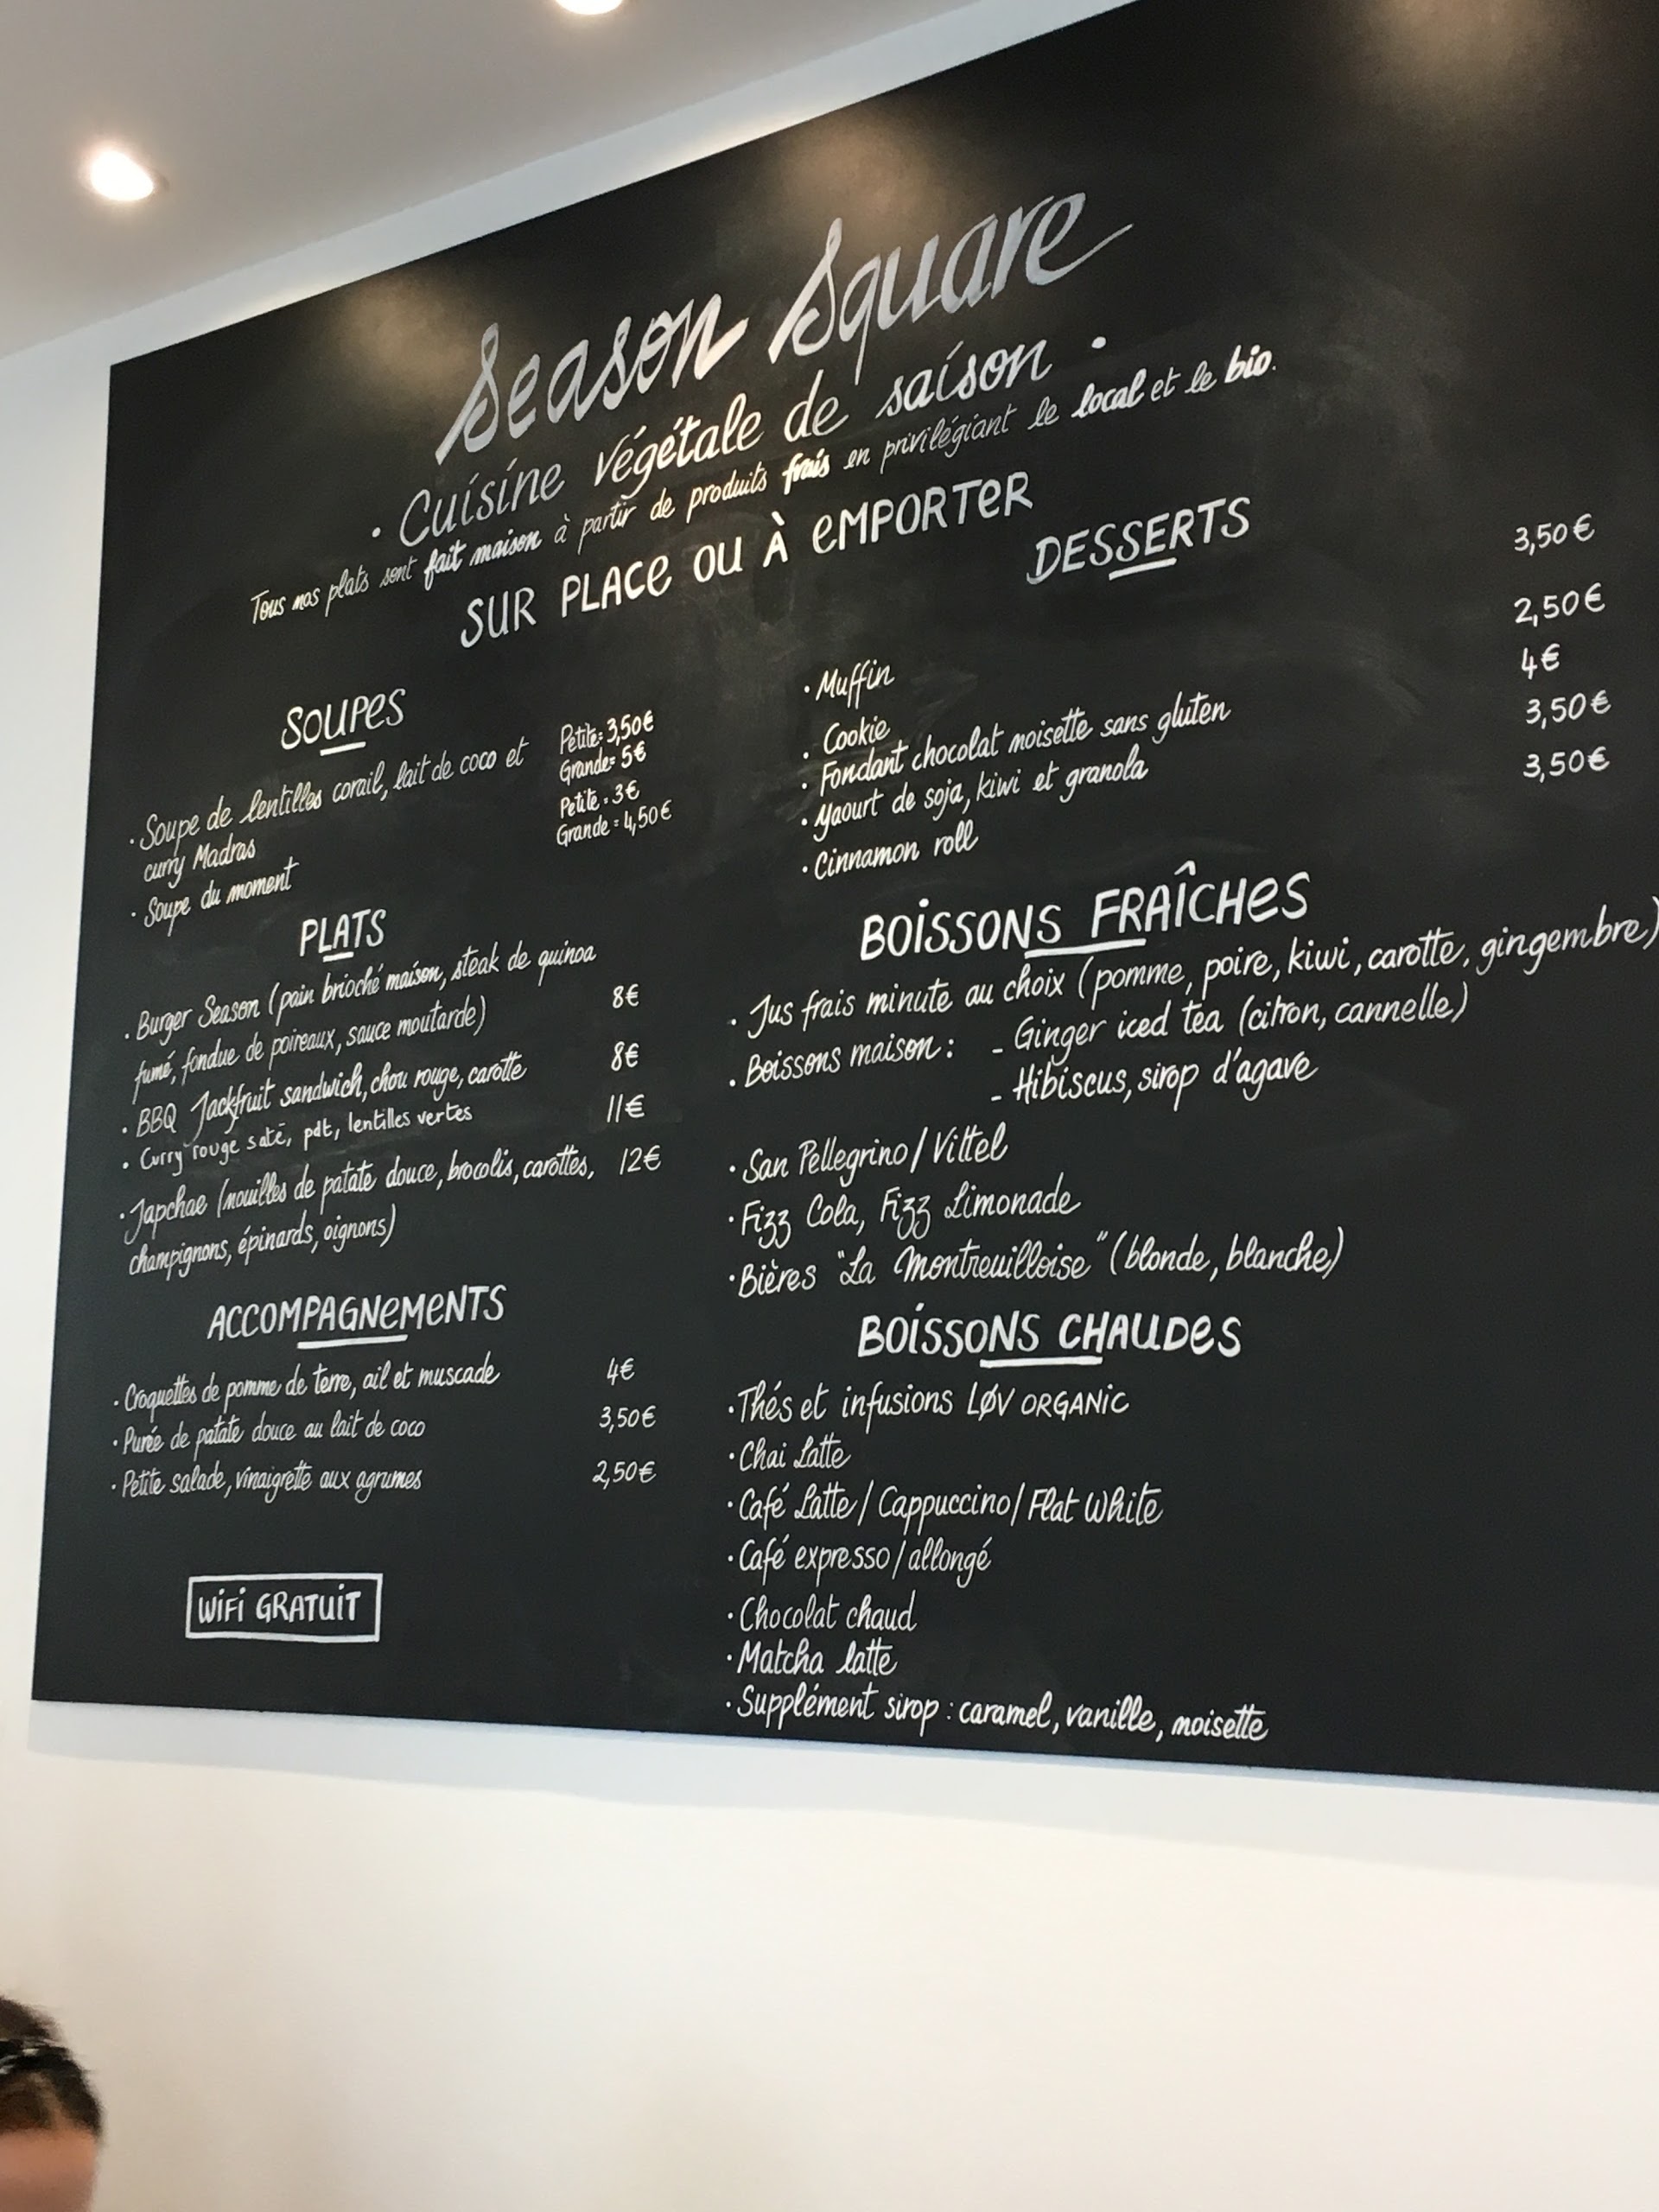 Season Square
· Cuisine végétale de saison ·
Tous nos plats sont fait maison à partir de produits frais en privilégiant le local et le bio.
SUR PLACE OU À EMPORTER
SOUPES
· Soupe de lentilles corail, lait de coco et
curry Madras
Petite: 3,50€
Grande: 5€
· Soupe du moment
Petite: 3€
Grande: 4,50€
PLATS
· Burger Season (pain brioché maison, steak de quinoa
fumé, fondue de poireaux, sauce moutarde) 8€
· BBQ Jackfruit sandwich, chou rouge, carotte 8€
· Curry rouge saté, pdt, lentilles vertes 11€
· Japchae (nouilles de patate douce, brocolis, carottes, 12€
champignons, épinards, oignons)
ACCOMPAGNEMENTS
· Croquettes de pomme de terre, ail et muscade 4€
· Purée de patate douce au lait de coco 3,50€
· Petite salade, vinaigrette aux agrumes 2,50€
WIFI GRATUIT
DESSERTS
· Muffin 3,50€
· Cookie 2,50€
· Fondant chocolat noisette sans gluten 4€
· Yaourt de soja, kiwi et granola 3,50€
· Cinnamon roll 3,50€
BOISSONS FRAÎCHES
· Jus frais minute au choix (pomme, poire, kiwi, carotte, gingembre)
· Boissons maison : - Ginger iced tea (citron, cannelle)
- Hibiscus, sirop d'agave
· San Pellegrino / Vittel
· Fizz Cola, Fizz Limonade
· Bières "La Montreuilloise" (blonde, blanche)
BOISSONS CHAUDES
· Thés et infusions LØV ORGANIC
· Chai Latte
· Café Latte / Cappuccino / Flat White
· Café expresso / allongé
· Chocolat chaud
· Matcha latte
· Supplément sirop : caramel, vanille, noisette